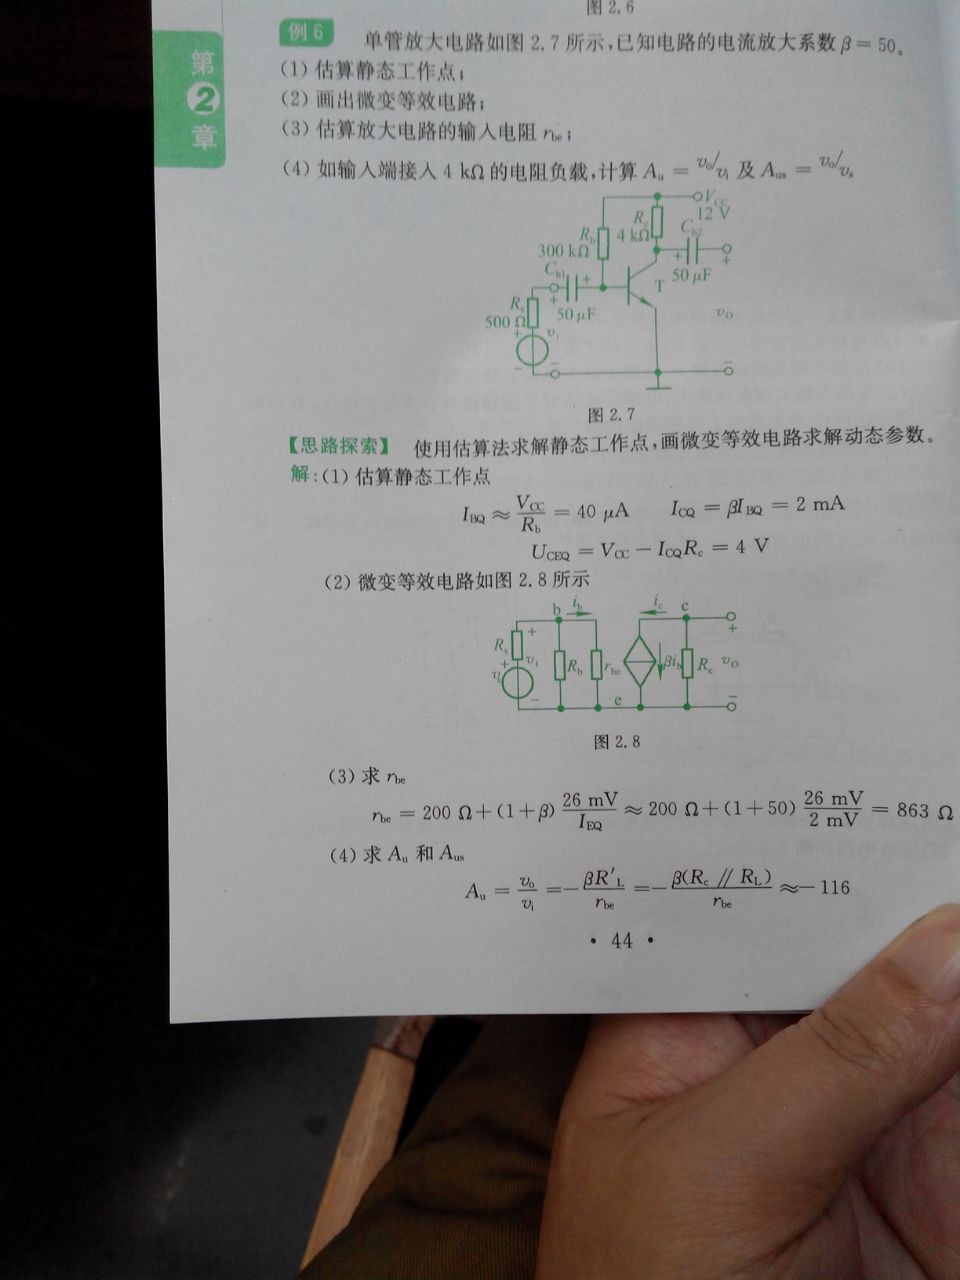 图 2.6
第2章
例 6 单管放大电路如图 2.7 所示,已知电路的电流放大系数 β = 50。
(1) 估算静态工作点;
(2) 画出微变等效电路;
(3) 估算放大电路的输入电阻 rbe;
(4) 如输入端接入 4 kΩ 的电阻负载,计算 Au = vo/vi 及 Aus = vo/vs
VCC
12 V
Rc
4 kΩ
Cb2
Rb
300 kΩ
+
50 μF
+
Cb1
+
T
Rs
500 Ω
+
50 μF
vi
vo
+
−
−
图 2.7
【思路探索】 使用估算法求解静态工作点,画微变等效电路求解动态参数。
解:(1) 估算静态工作点
IBQ ≈ VCC/Rb = 40 μA ICQ = βIBQ = 2 mA
UCEQ = VCC − ICQRc = 4 V
(2) 微变等效电路如图 2.8 所示
b ib ic c
+ +
Rs vi Rb rbe βib Rc vo
+
v
− e −
图 2.8
(3) 求 rbe
rbe = 200 Ω + (1+β) 26 mV/IEQ ≈ 200 Ω + (1+50) 26 mV/2 mV = 863 Ω
(4) 求 Au 和 Aus
Au = vo/vi = − βR′L/rbe = − β(Rc // RL)/rbe ≈ − 116
· 44 ·